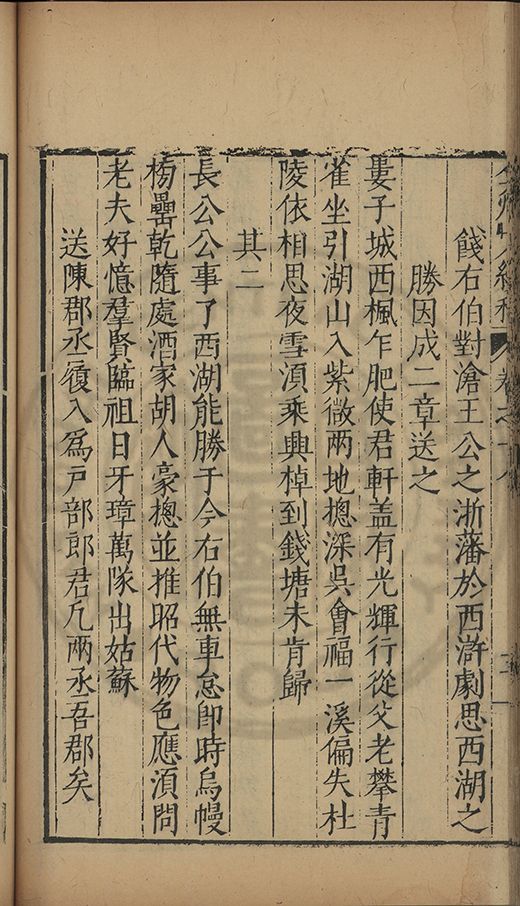 餞右伯對滄王公之浙藩於西滸劇思西湖之
勝因成二章送之
婁子城西楓乍肥使君軒盖有光輝行從父老攀青
雀坐引湖山入紫微两地摠深吳會福一溪偏失杜
陵依相思夜雪湏乘興棹到錢塘未肯歸
其二
長公公事了西湖能勝于今右伯無車怠卽時烏幔
楊罍乾隨處酒家胡人豪摠並推昭代物色應湏問
老夫好憶羣賢臨祖日牙璋萬隊出姑蘇
送陳郡丞復入爲戸部郎君凢兩丞吾郡矣